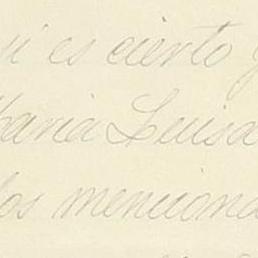 si es cierto
Maria Luisa
los menciona